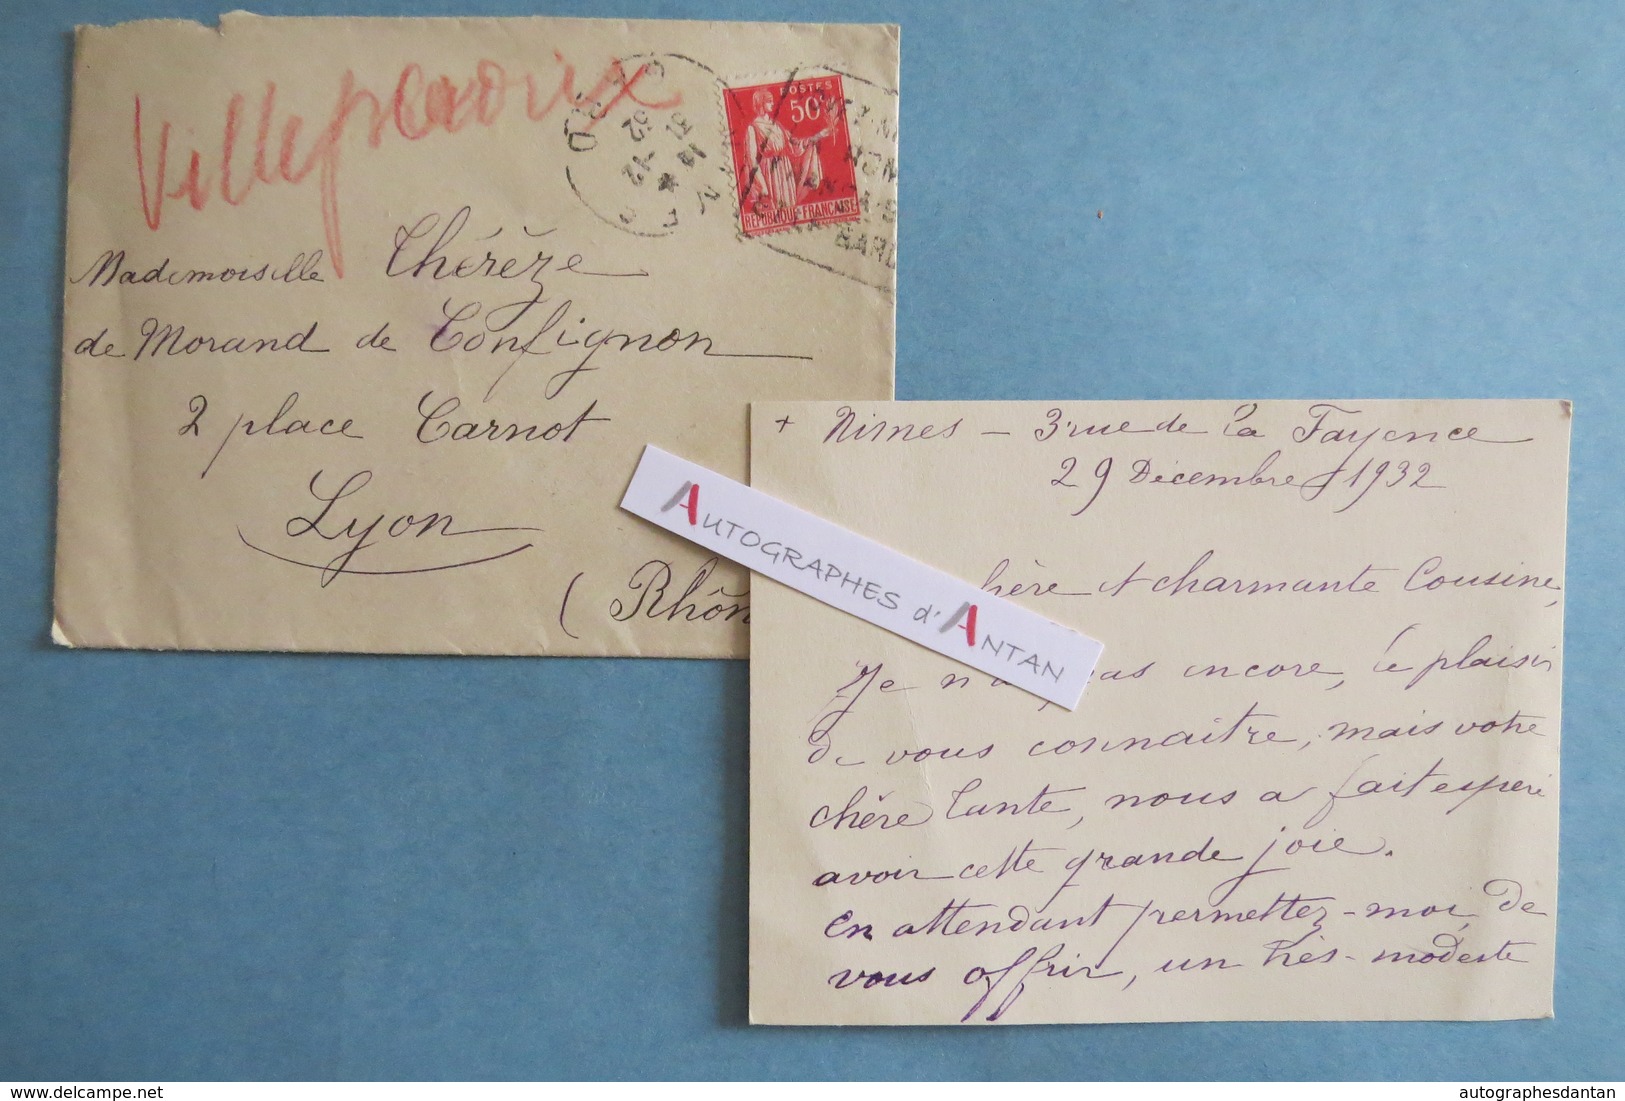 Villefranche
POSTES
50c
RÉPUBLIQUE FRANÇAISE
Mademoiselle Thérèze
de Morand de Confignon
2 place Carnot
Lyon
(Rhôn
AUTOGRAPHES d'ANTAN
+ Nimes - 3 rue de la Fayence
29 Décembre 1932
hère et charmante Cousine,
Je n'a pas encore, le plaisir
de vous connaitre, mais votre
chère Tante, nous a fait espéré
avoir cette grande joie.
En attendant permettez-moi, de
vous offrir, un très-modeste
autographesdantan
https://www.delcampe.net